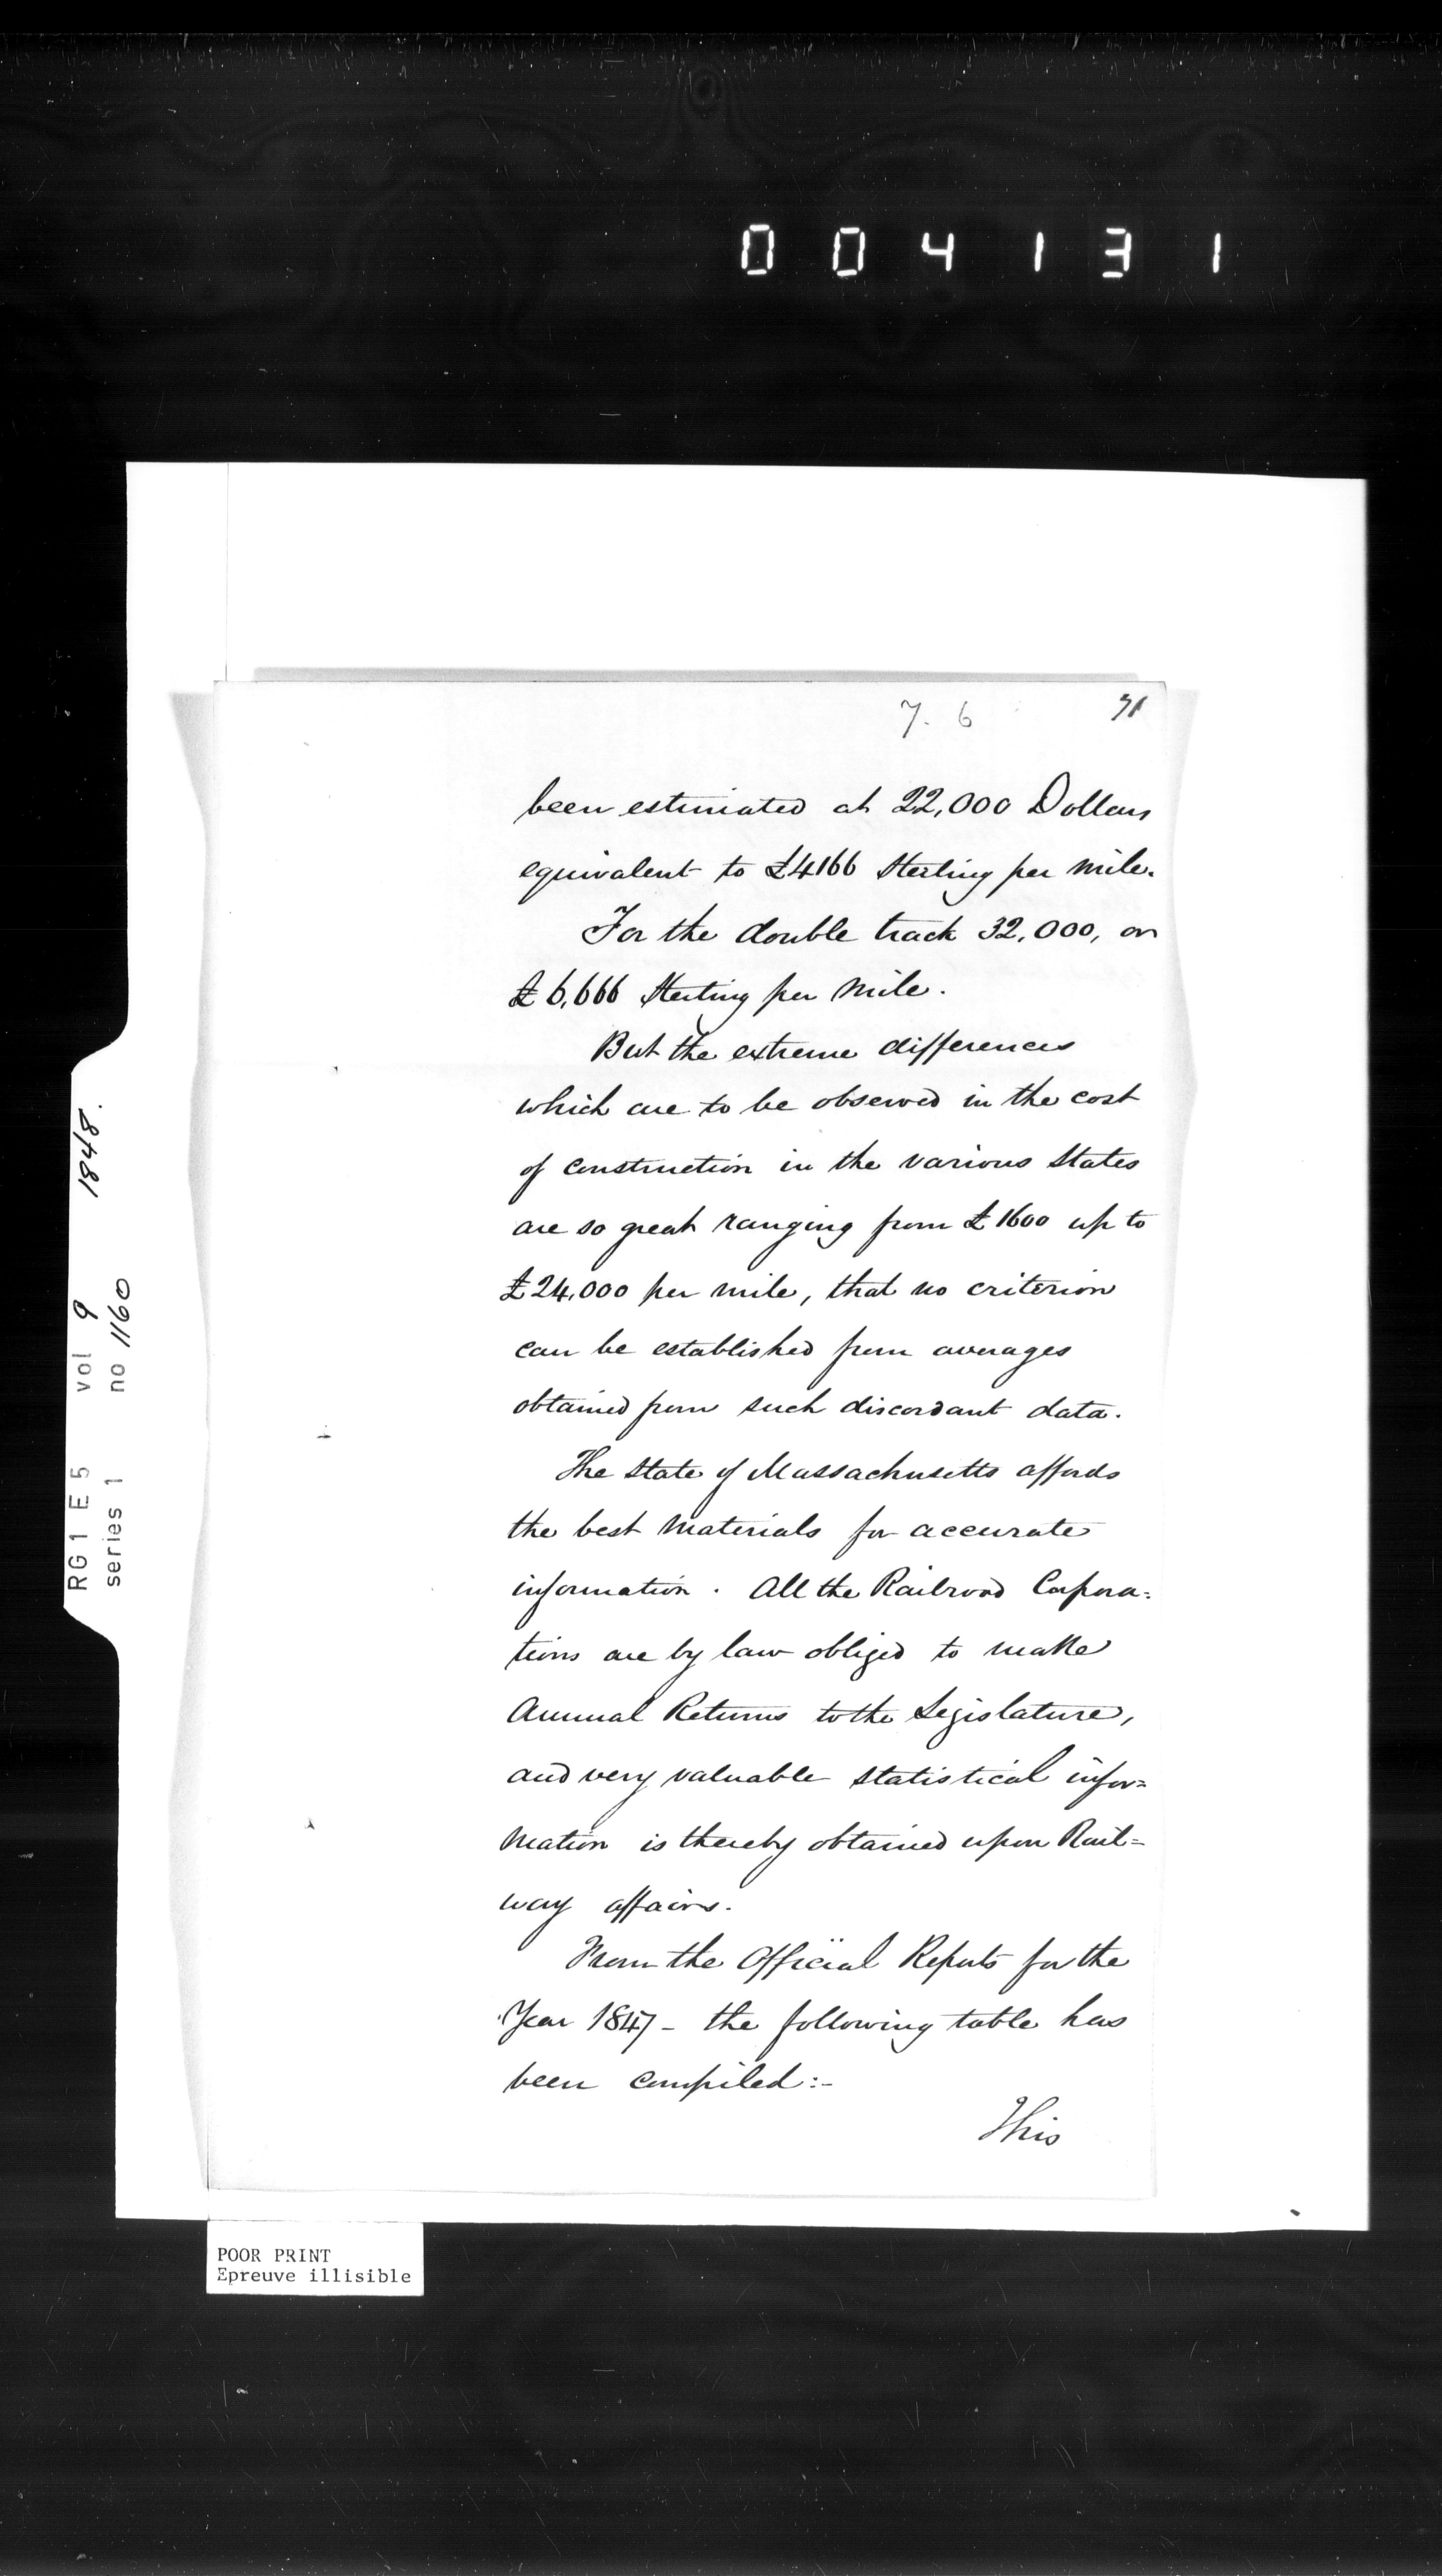 004131
7. 6
71
been estimated at 22,000 Dollars
equivalent to £4166 Sterling per mile.
For the double track 32,000, or
£6,666 Sterling per mile.
But the extreme differences
which are to be observed in the cost
of construction in the various States
are so great ranging from £1600 up to
£24,000 per mile, that no criterion
can be established from averages
obtained from such discordant data.
The State of Massachusetts affords
the best materials for accurate
information. All the Railroad Corpora=
tions are by law obliged to make
Annual Returns to the Legislature,
and very valuable statistical infor=
mation is thereby obtained upon Rail=
way affairs.
From the Official Reports for the
Year 1847 - the following table has
been compiled:-
This
RG1 E5 vol 9 1848.
series 1 no 1160
POOR PRINT
Epreuve illisible